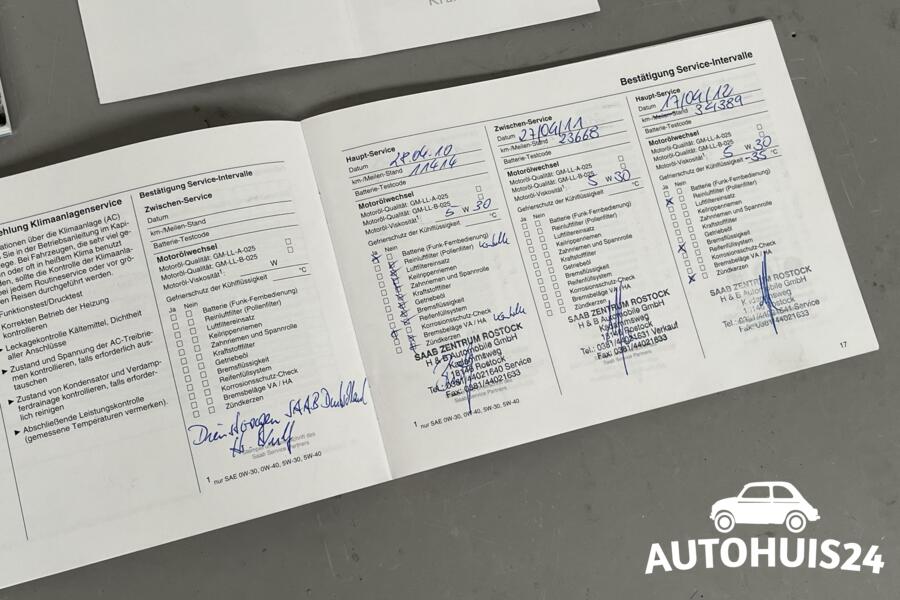 Bestätigung Service-Intervalle
ehlung Klimaanlagenservice
ationen über die Klimaanlage (AC)
Sie in der Betriebsanleitung im Kapi-
ege. Bei Fahrzeugen, die sehr viel ge-
n oder oft in heißem Klima benutzt
den, sollte die Kontrolle der Klimaanla-
ei jedem Routineservice oder vor grö-
en Reisen durchgeführt werden.
Funktionstest/Drucktest
Korrekten Betrieb der Heizung
kontrollieren
Leckagekontrolle Kältemittel, Dichtheit
aller Anschlüsse
Zustand und Spannung der AC-Treibrie-
men kontrollieren, falls erforderlich aus-
tauschen
Zustand von Kondensator und Verdamp-
ferdrainage kontrollieren, falls erforder-
lich reinigen
Abschließende Leistungskontrolle
(gemessene Temperaturen vermerken).
Bestätigung Service-Intervalle
Zwischen-Service
Datum
km-/Meilen-Stand
Batterie-Testcode
Motorölwechsel
Motoröl-Qualität: GM-LL-A-025
Motoröl-Qualität: GM-LL-B-025
Motoröl-Viskosität¹: W
Gefrierschutz der Kühlflüssigkeit °C
Ja Nein
Batterie (Funk-Fernbedienung)
Reinluftfilter (Pollenfilter)
Luftfiltereinsatz
Keilrippenriemen
Zahnriemen und Spannrolle
Kraftstofffilter
Getriebeöl
Bremsflüssigkeit
Reifenfüllsystem
Korrosionsschutz-Check
Bremsbeläge VA / HA
Zündkerzen
Saab Service Partners
1 nur SAE 0W-30, 0W-40, 5W-30, 5W-40
Haupt-Service
Datum 28.04.10
km-/Meilen-Stand 11414
Batterie-Testcode
Motorölwechsel
Motoröl-Qualität: GM-LL-A-025
Motoröl-Qualität: GM-LL-B-025
Motoröl-Viskosität¹: 5 W 30
Gefrierschutz der Kühlflüssigkeit °C
Ja Nein
Batterie (Funk-Fernbedienung)
Reinluftfilter (Pollenfilter)
Luftfiltereinsatz
Keilrippenriemen
Zahnriemen und Spannrolle
Kraftstofffilter
Getriebeöl
Bremsflüssigkeit
Reifenfüllsystem
Korrosionsschutz-Check
Bremsbeläge VA / HA
Zündkerzen
SAAB ZENTRUM ROSTOCK
H & B Automobile GmbH
18146 Rostock
Tel.: 0381/44021640 Service
Fax: 0381/44021633
Saab Service Partners
1 nur SAE 0W-30, 0W-40, 5W-30, 5W-40
Zwischen-Service
Datum 27/04/11
km-/Meilen-Stand 23668
Batterie-Testcode
Motorölwechsel
Motoröl-Qualität: GM-LL-A-025
Motoröl-Qualität: GM-LL-B-025
Motoröl-Viskosität¹: 5 W 30
Gefrierschutz der Kühlflüssigkeit °C
Ja Nein
Batterie (Funk-Fernbedienung)
Reinluftfilter (Pollenfilter)
Luftfiltereinsatz
Keilrippenriemen
Zahnriemen und Spannrolle
Kraftstofffilter
Getriebeöl
Bremsflüssigkeit
Reifenfüllsystem
Korrosionsschutz-Check
Bremsbeläge VA / HA
Zündkerzen
SAAB ZENTRUM ROSTOCK
H & B Automobile GmbH
18146 Rostock
Tel.: 0381/44021631 Verkauf
Fax: 0381/44021633
Saab Service Partners
Haupt-Service
Datum 17/04/12
km-/Meilen-Stand 34389
Batterie-Testcode
Motorölwechsel
Motoröl-Qualität: GM-LL-A-025
Motoröl-Qualität: GM-LL-B-025
Motoröl-Viskosität¹: 5 W 30
Gefrierschutz der Kühlflüssigkeit -35 °C
Ja Nein
Batterie (Funk-Fernbedienung)
Reinluftfilter (Pollenfilter)
Luftfiltereinsatz
Keilrippenriemen
Zahnriemen und Spannrolle
Kraftstofffilter
Getriebeöl
Bremsflüssigkeit
Reifenfüllsystem
Korrosionsschutz-Check
Bremsbeläge VA / HA
Zündkerzen
SAAB ZENTRUM ROSTOCK
H & B Automobile GmbH
18146 Rostock
Service
Fax: 0381/44021633
17
AUTOHUIS24